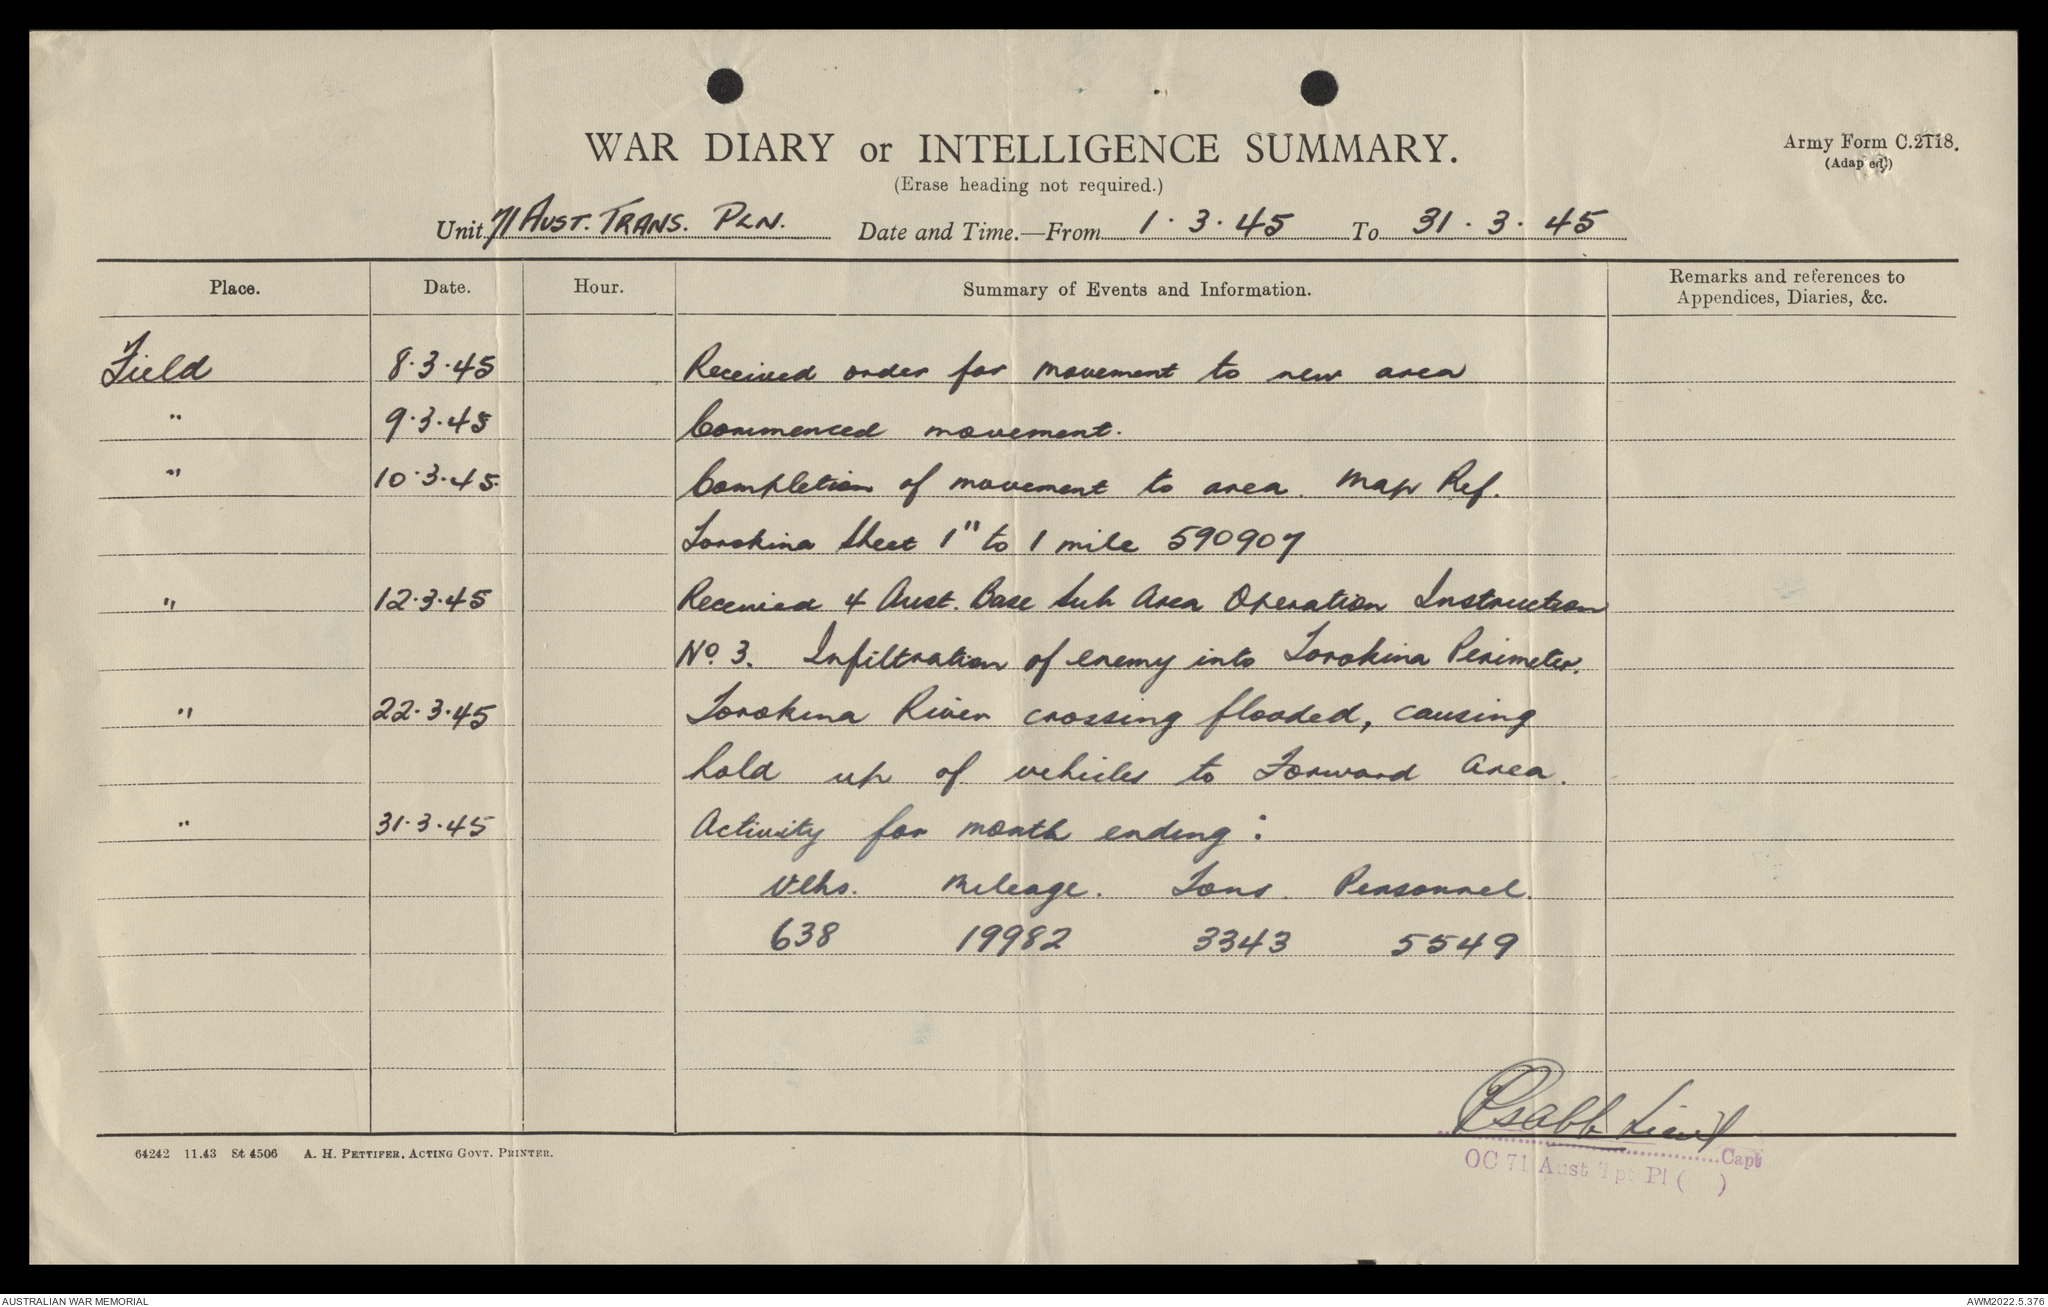 WAR DIARY or INTELLIGENCE SUMMARY.
Army Form C.2118.
(Adapted)
(Erase heading not required.)
Unit 71 AUST. TRANS. PLN. Date and Time.—From 1.3.45 To 31.3.45
Place. Date. Hour. Summary of Events and Information. Remarks and references to
Appendices, Diaries, &c.
Field 8.3.45 Received order for movement to new area
" 9.3.45 Commenced movement.
" 10.3.45 Completion of movement to area. Map Ref.
Torokina Sheet 1" to 1 mile 590907
" 12.3.45 Received 4 Aust. Base Sub Area Operation Instruction
No. 3. Infiltration of enemy into Torokina Perimeter.
" 22.3.45 Torokina River crossing flooded, causing
hold up of vehicles to Forward Area.
" 31.3.45 Activity for month ending:
Vehs. Mileage. Tons. Personnel.
638 19982 3343 5549
Lieut
Capt
OC 71 Aust Tpt Pl ( )
64242 11.43 St 4506 A. H. PETTIFER, ACTING GOVT. PRINTER.
AUSTRALIAN WAR MEMORIAL AWM2022.5.376